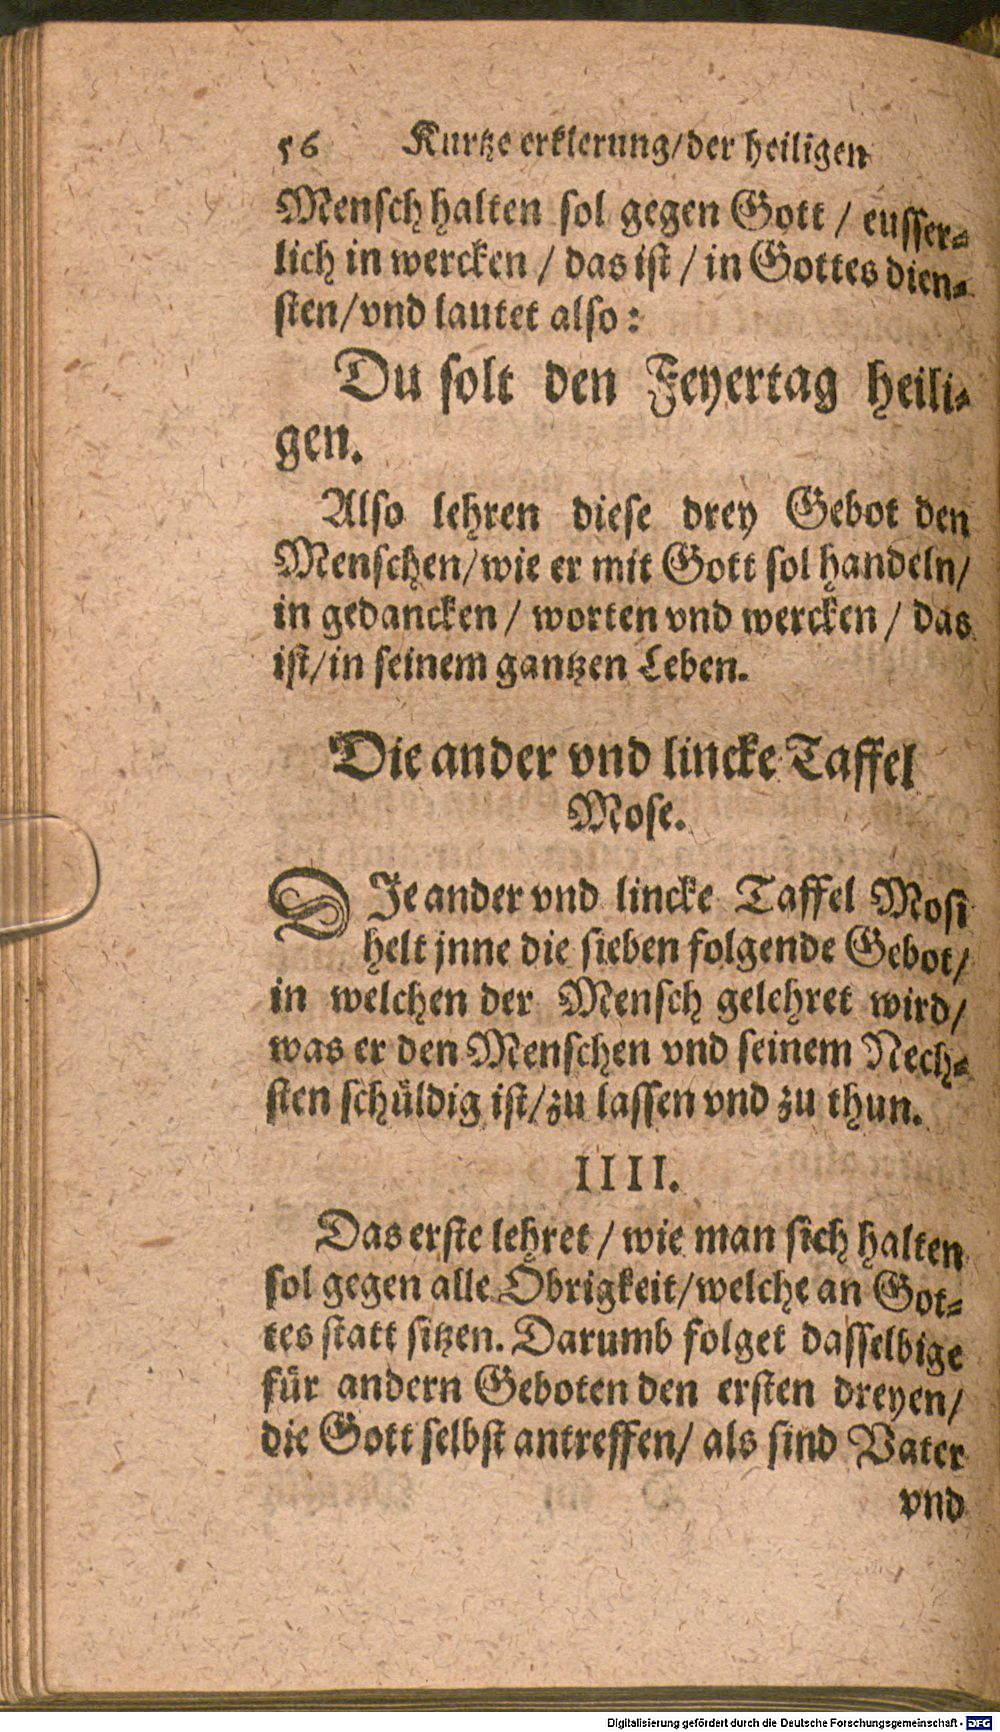 56 Kurtze erklerung/der heiligen
Mensch halten sol gegen Gott / eusser-
lich in wercken / das ist / in Gottes dien-
sten/vnd lautet also:
Du solt den Feyertag heili-
gen.
Also lehren diese drey Gebot den
Menschen/wie er mit Gott sol handeln/
in gedancken / worten vnd wercken / das
ist/in seinem gantzen Leben.
Die ander vnd lincke Taffel
Mose.
DJe ander vnd lincke Taffel Mosi
helt jnne die sieben folgende Gebot/
in welchen der Mensch gelehret wird/
was er den Menschen vnd seinem Nech-
sten schüldig ist/zu lassen vnd zu thun.
IIII.
Das erste lehret / wie man sich halten
sol gegen alle Obrigkeit/welche an Got-
tes statt sitzen. Darumb folget dasselbige
für andern Geboten den ersten dreyen/
die Gott selbst antreffen/ als sind Vater
vnd
Digitalisierung gefördert durch die Deutsche Forschungsgemeinschaft - DFG